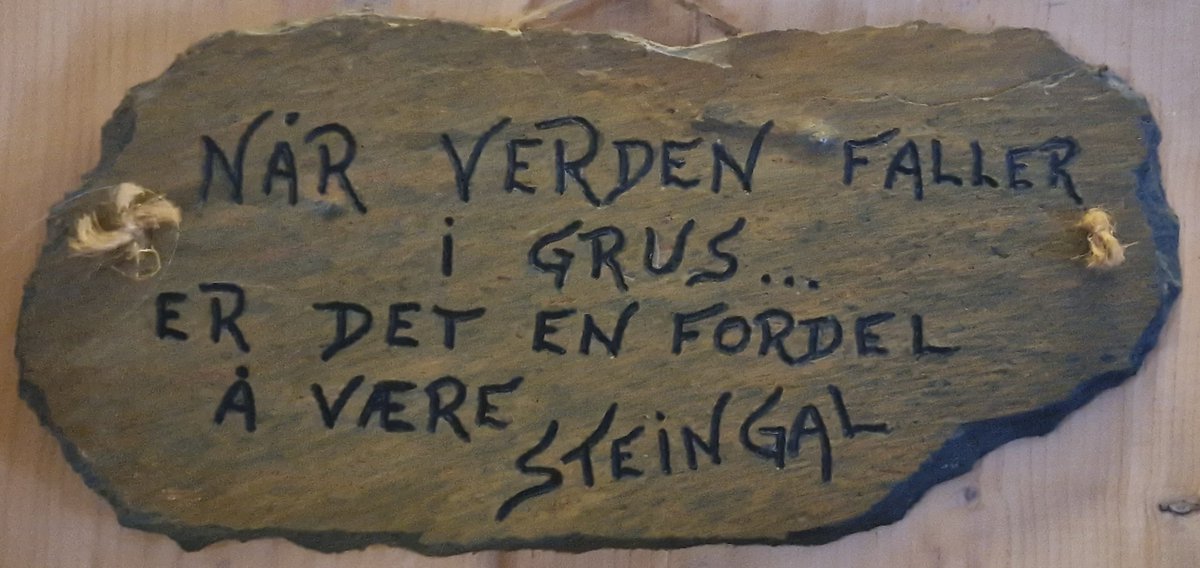 NÅR VERDEN FALLER
i GRUS...
ER DET EN FORDEL
Å VÆRE STEiNGAL